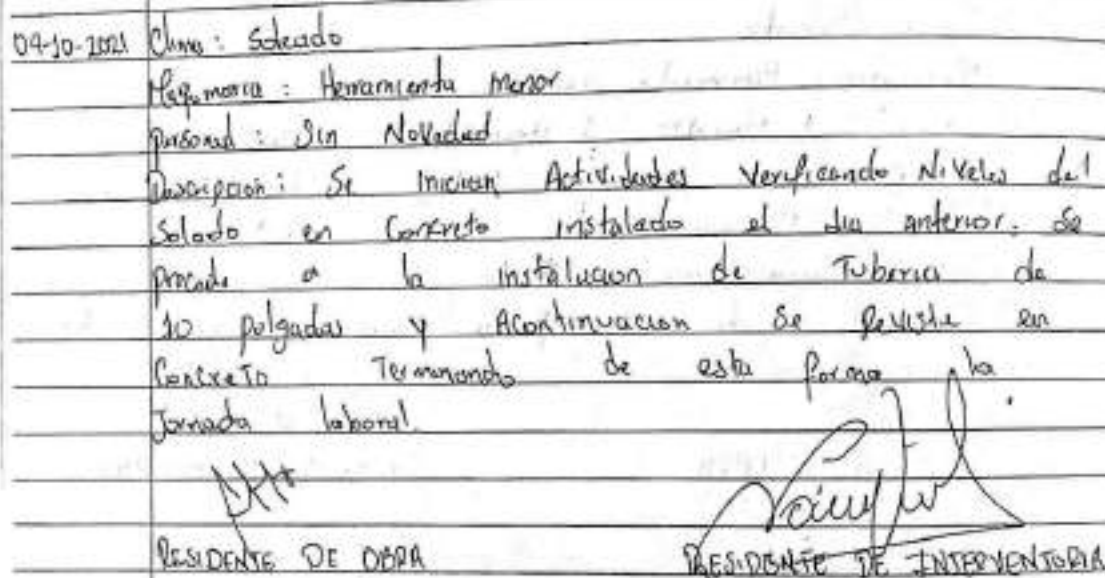 09-10-2021 Clima: Soleado
Maquinaria: Herramienta menor
personal: Sin Novedad
Descripcion: Se inician Actividades Verificando Niveles del
Solado en Concreto instalado el dia anterior. Se
procede a la instalacion de Tuberia de
10 pulgadas y Acontinuacion Se Reviste en
Concreto Terminando de esta forma la
Jornada laboral.
RESIDENTE DE OBRA PRESIDENTE DE INTERVENTORIA